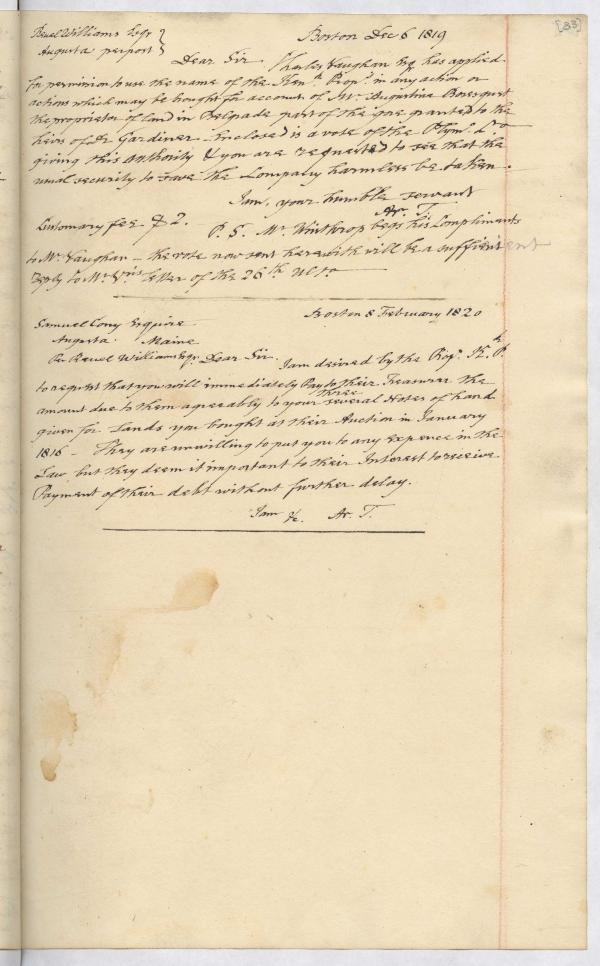 [33]
Reuel Williams Esqr } Boston Dec 6 1819
Augusta per post }
Dear Sir. Charles Vaughan Esq has applied
for permission to use the name of the Kenk. Props. in any action or
actions which may be bought for account of Mr. Augustine
the proprietor of land in Belgrade part of the gore granted to the
heirs of Dr Gardiner. Enclosed is a vote of the Plymo.
giving this authority & you are requested to see that the
usual security to save the Company harmless be taken.
I am, your humble servant
Ar. T.
Customary fee. $2. P.S. Mr. Winthrop begs his Compliments
to Mr. Vaughan – the vote now sent herewith will be a sufficient
reply to Mr V's letter of the 26th ulto
Samuel Cony Esquire Boston 8 February 1820
Augusta. Maine
Per Reuel Williams Esqr. Dear Sir. I am desired by the Prop. K. P.
to request that you will immediately Pay to their Treasurer the
amount due to them agreeably to your three several Notes of hand
given for Lands you bought at their Auction in January
1816 – They are unwilling to put you to any expence in the
Law but they deem it important to their Interest to receive
Payment of their debt without further delay.
I am &c. Ar. T.